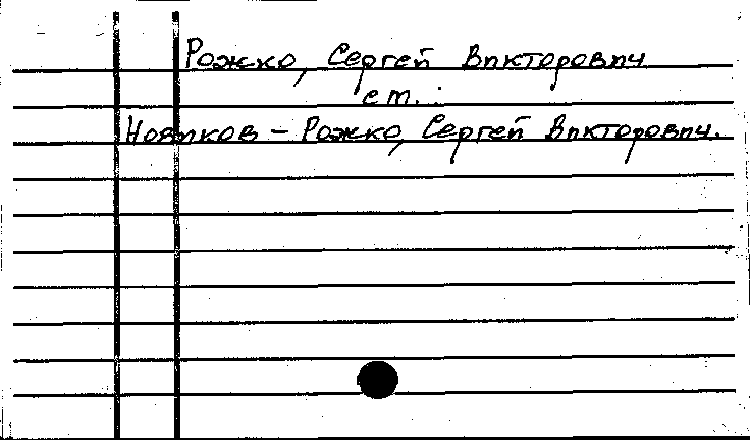 Рожко, Сергей Викторович
см.
Новиков - Рожко, Сергей Викторович.